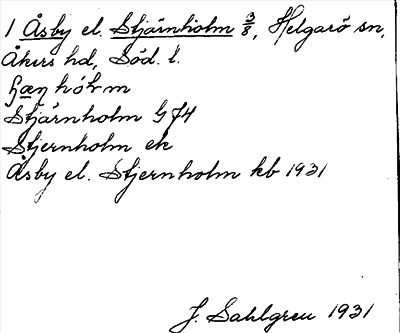 1 Åsby el. Stjärnholm 3/8, Helgarö sn,
Åkers hd, Söd. l.
Stjärnholm G 74
Stjernholm ek
Åsby el. Stjernholm kb 1931
J. Sahlgren 1931